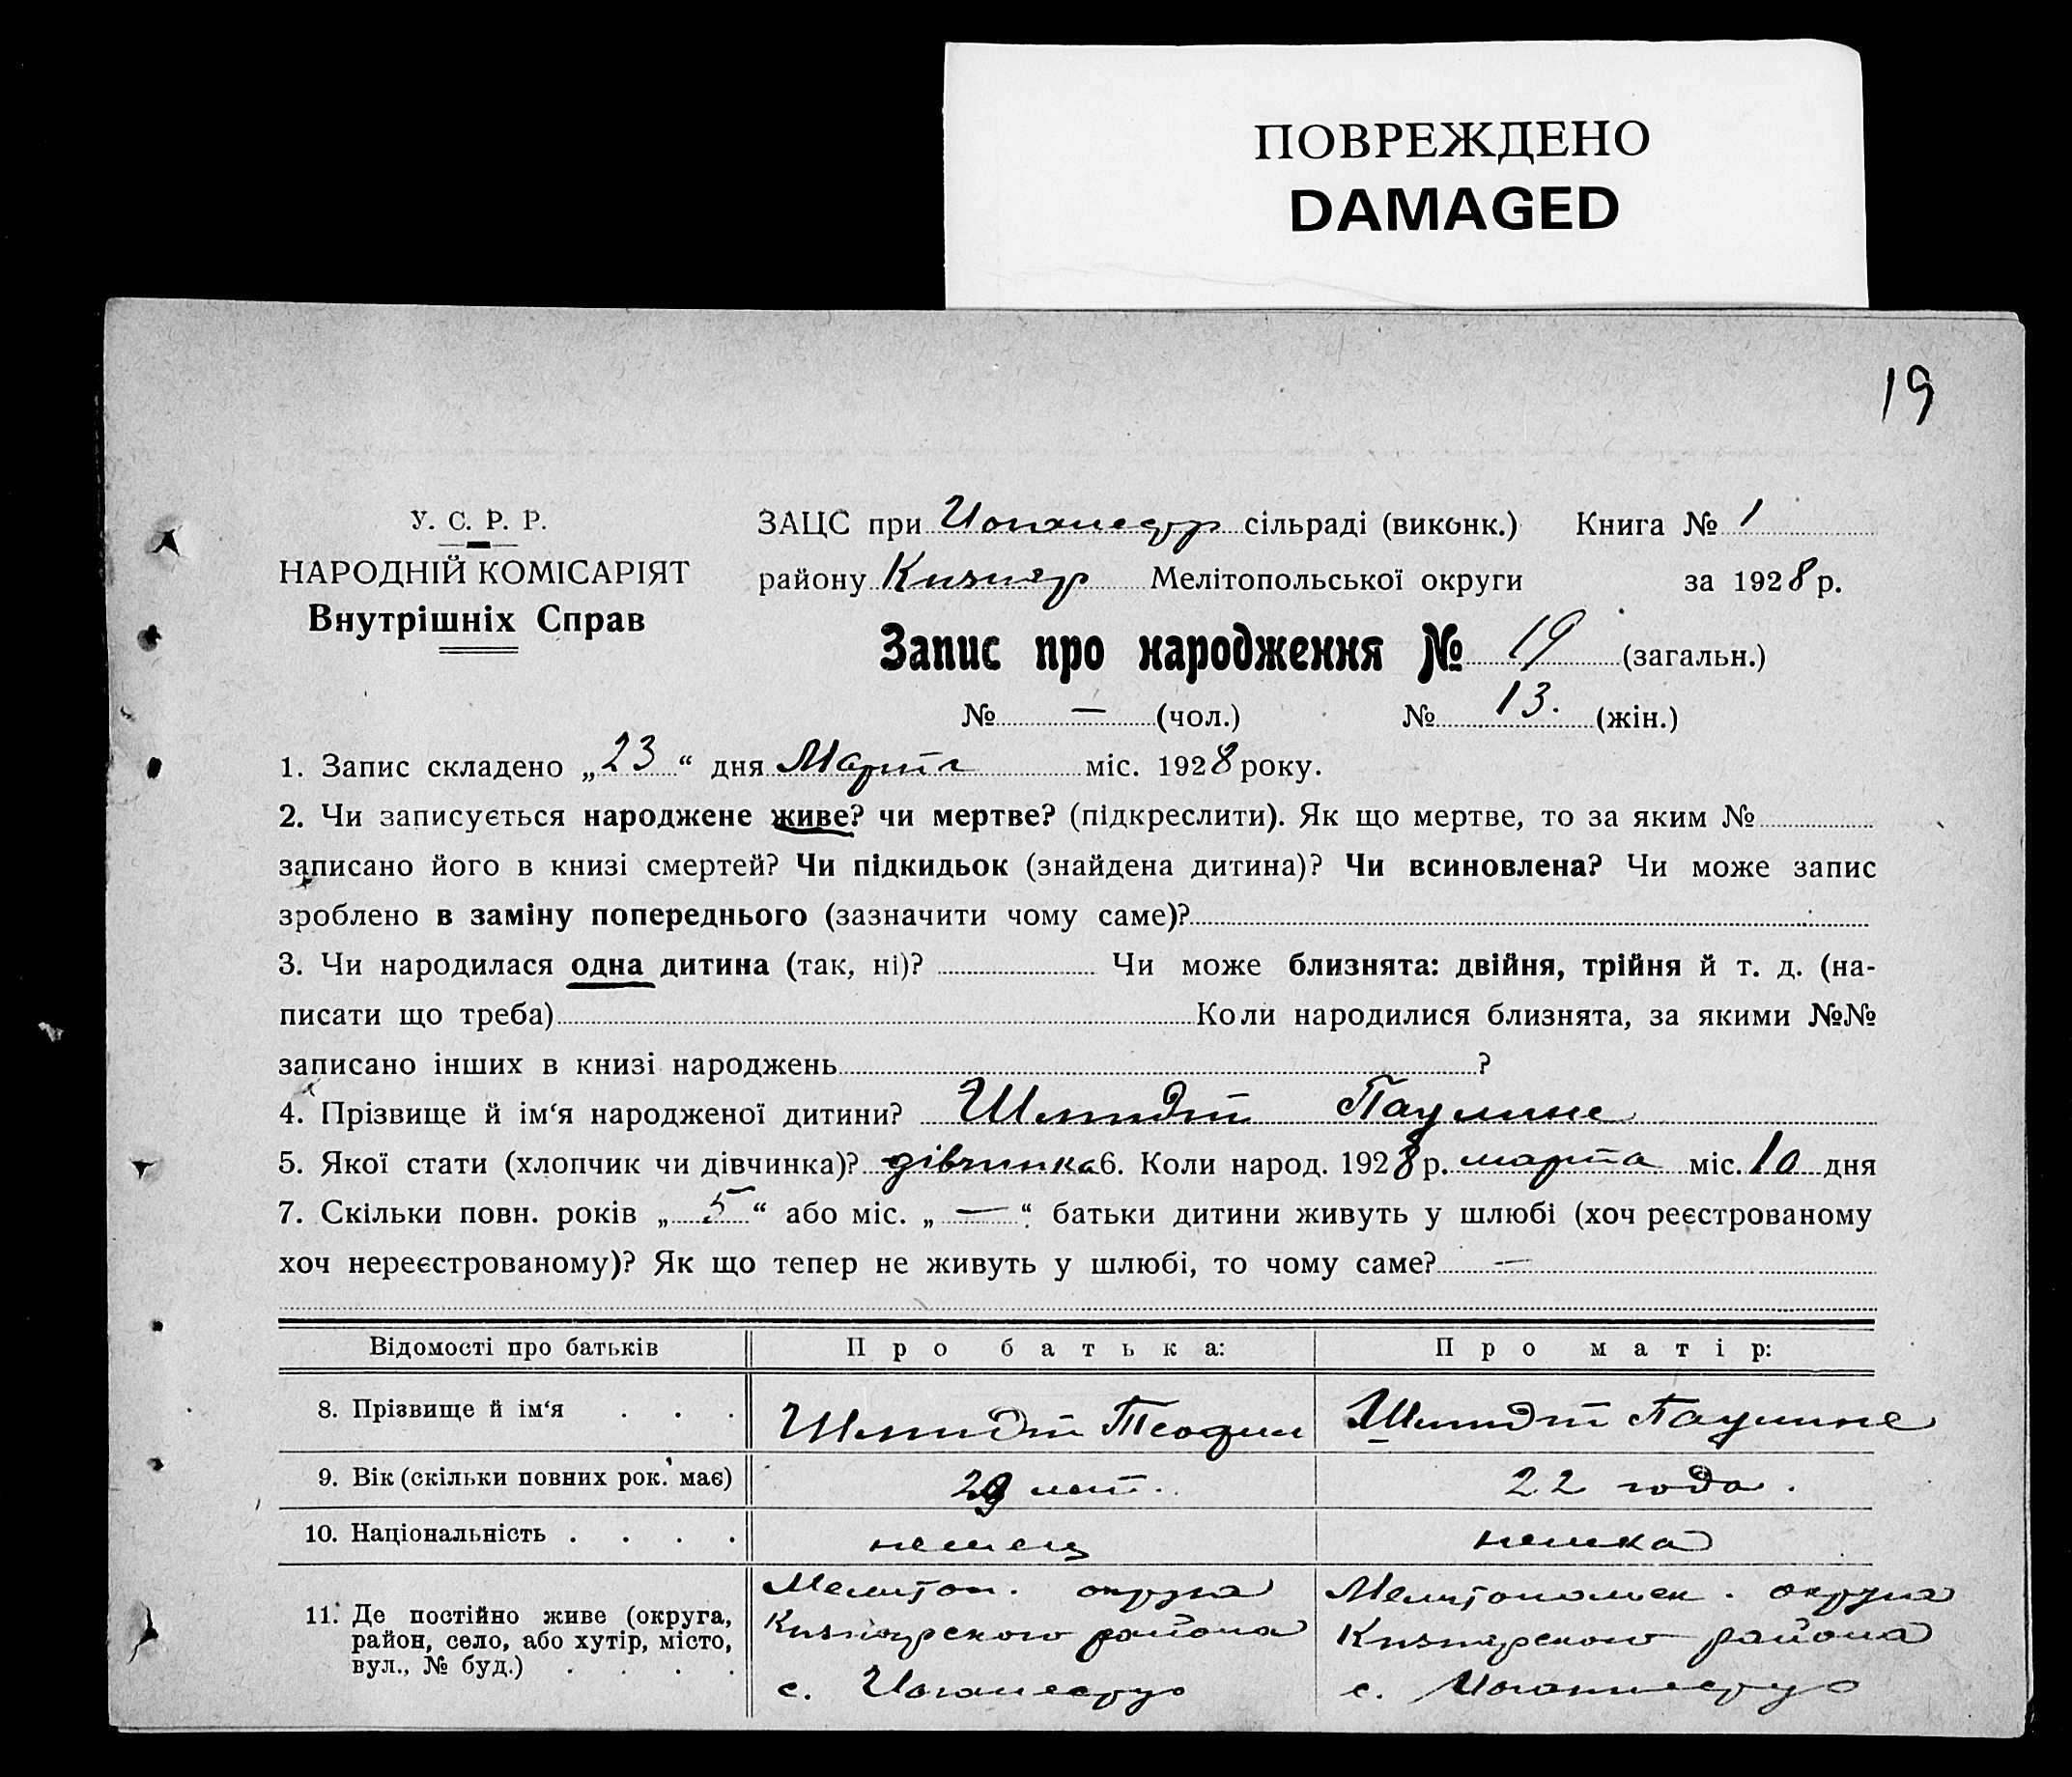 ПОВРЕЖДЕНО
DAMAGED
19
У. С. Р. Р.
НАРОДНІЙ КОМІСАРІЯТ
Внутрішніх Справ
ЗАЦС при сільраді (виконк.) Книга № 1
району Кизияр Мелітопольської округи за 1928 р.
Запис про народження № 19 (загальн.)
№ — (чол.) № 13. (жін.)
1. Запис складено „23“ дня Марта міс. 1928 року.
2. Чи записується народжене живе? чи мертве? (підкреслити). Як що мертве, то за яким №
записано його в книзі смертей? Чи підкидьок (знайдена дитина)? Чи всиновлена? Чи може запис
зроблено в заміну попереднього (зазначити чому саме)?
3. Чи народилася одна дитина (так, ні)? Чи може близнята: двійня, трійня й т. д. (на-
писати що треба) Коли народилися близнята, за якими №№
записано інших в книзі народжень ?
4. Прізвище й ім‘я народженої дитини? Шмидт Паулине
5. Якої стати (хлопчик чи дівчинка)? дівчинка 6. Коли народ. 1928 р. марта міс. 10 дня
7. Скільки повн. років „5“ або міс. „—“ батьки дитини живуть у шлюбі (хоч реєстрованому
хоч нереєстрованому)? Як що тепер не живуть у шлюбі, то чому саме? —
Відомості про батьків Про батька: Про матір:
8. Прізвище й ім‘я . . . Шмидт Теофил Шмидт Паулине
9. Вік (скільки повних рок. має) 29 лет. 22 года.
10. Національність . . . . немец немка
11. Де постійно живе (округа, район, село, або хутір, місто, вул., № буд.) . . . .
Мелитоп. округа
Кизиярского района
с. Иоганесру
Мелитопольск. округа
Кизиярского района
с. Иоганнесру